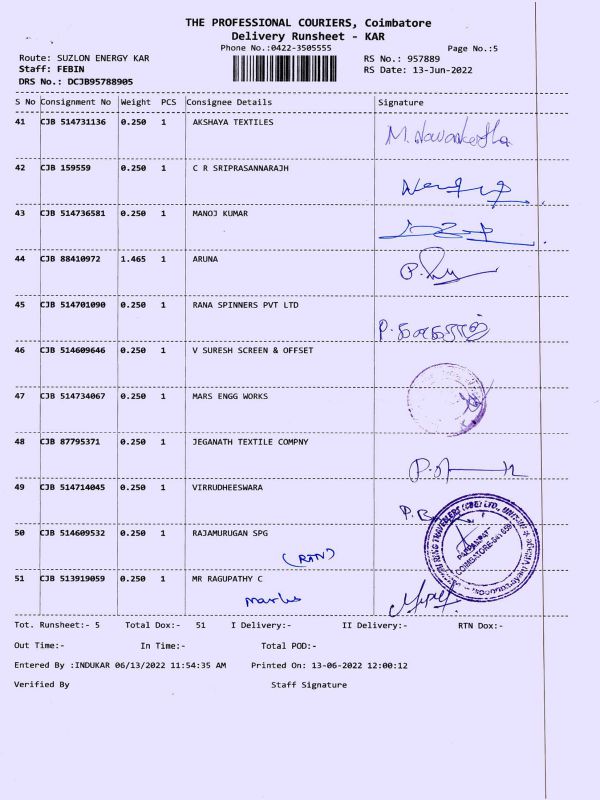 THE PROFESSIONAL COURIERS, Coimbatore
Delivery Runsheet - KAR
Phone No.:0422-3505555 Page No.:5
Route: SUZLON ENERGY KAR RS No.: 957889
Staff: FEBIN RS Date: 13-Jun-2022
DRS No.: DCJB95788905
S No Consignment No Weight PCS Consignee Details Signature
41 CJB 514731136 0.250 1 AKSHAYA TEXTILES
42 CJB 159559 0.250 1 C R SRIPRASANNARAJH
43 CJB 514736581 0.250 1 MANOJ KUMAR
44 CJB 88410972 1.465 1 ARUNA
45 CJB 514701090 0.250 1 RANA SPINNERS PVT LTD
46 CJB 514609646 0.250 1 V SURESH SCREEN & OFFSET
47 CJB 514734067 0.250 1 MARS ENGG WORKS
48 CJB 87795371 0.250 1 JEGANATH TEXTILE COMPNY
49 CJB 514714045 0.250 1 VIRRUDHEESWARA
50 CJB 514609532 0.250 1 RAJAMURUGAN SPG
(RTN)
51 CJB 513919059 0.250 1 MR RAGUPATHY C
Tot. Runsheet:- 5 Total Dox:- 51 I Delivery:- II Delivery:- RTN Dox:-
Out Time:- In Time:- Total POD:-
Entered By :INDUKAR 06/13/2022 11:54:35 AM Printed On: 13-06-2022 12:00:12
Verified By Staff Signature